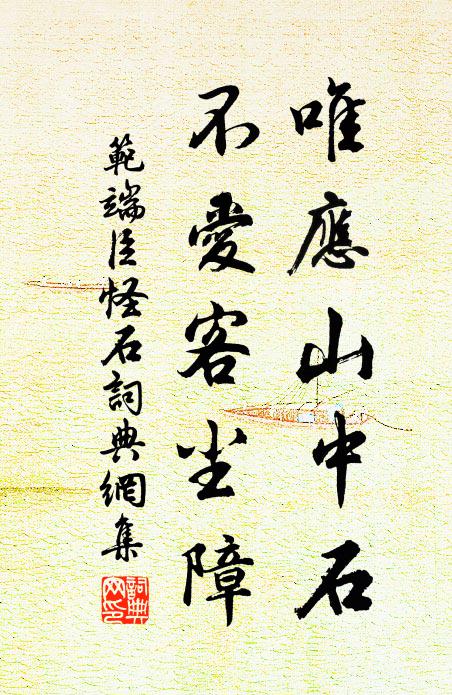 唯應山中石
不愛客尘障
範端臣怪石詞典網集
詞典网印